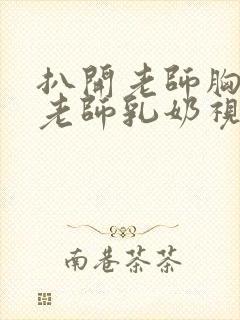 扒開老師胸
老師乳奶視
南巷茶茶